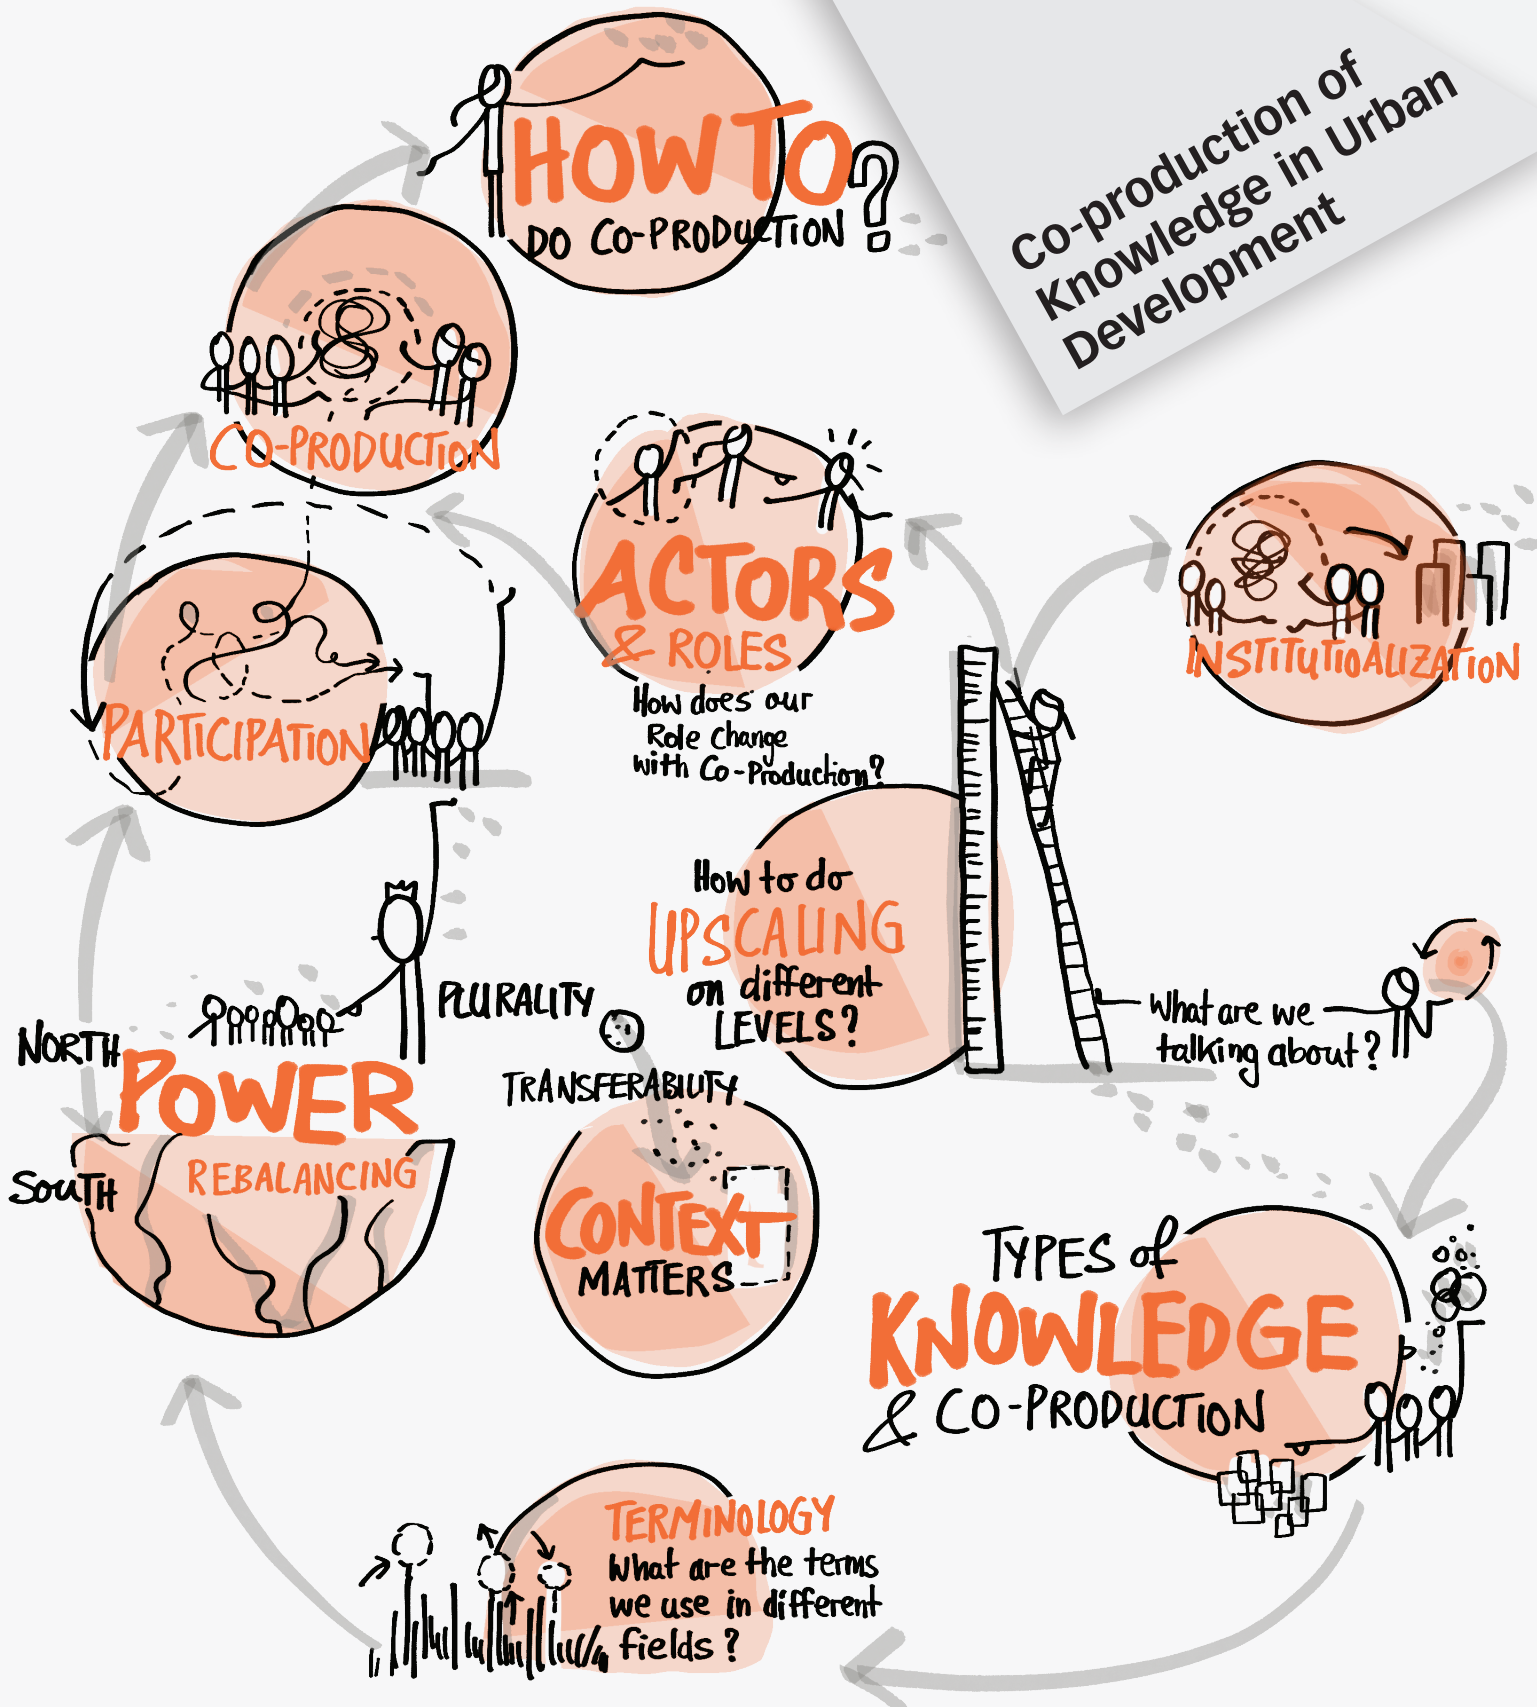 Co-production of
Knowledge in Urban
Development
HOW TO
DO CO-PRODUCTION?
CO-PRODUCTION
ACTORS
& ROLES
How does our
Role Change
with Co-Production?
INSTITUTIOALIZATION
PARTICIPATION
How to do
UPSCALING
on different
LEVELS?
What are we
talking about?
PLURALITY
NORTH
POWER
REBALANCING
SOUTH
TRANSFERABILITY
CONTEXT
MATTERS
TYPES of
KNOWLEDGE
& CO-PRODUCTION
TERMINOLOGY
What are the terms
we use in different
fields?